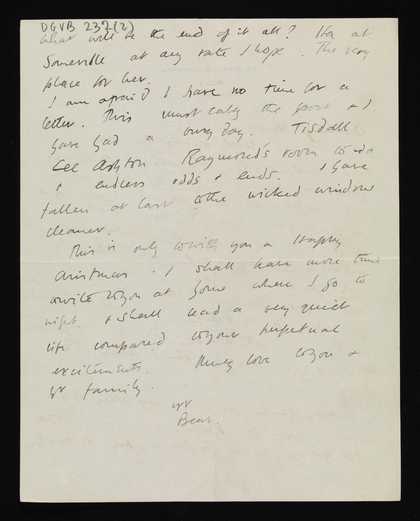 DGVB 237(2)
What will be the end of it all? Ha at
Somerville at any rate I hope. The very
place for her.
I am afraid I have no time for a
letter. This must catch the post & I
have had a busy day. Tisdall
Lee Ashton Raymond's room to do
& endless odds & ends. I have
fallen at last to the wicked window
cleaner.
This is only to wish you a Happy
Christmas. I shall have more time
to write to you at home where I go to
night & shall lead a very quiet
life compared to your perpetual
excitements. Much love to you &
yr family.
yr
Bear.